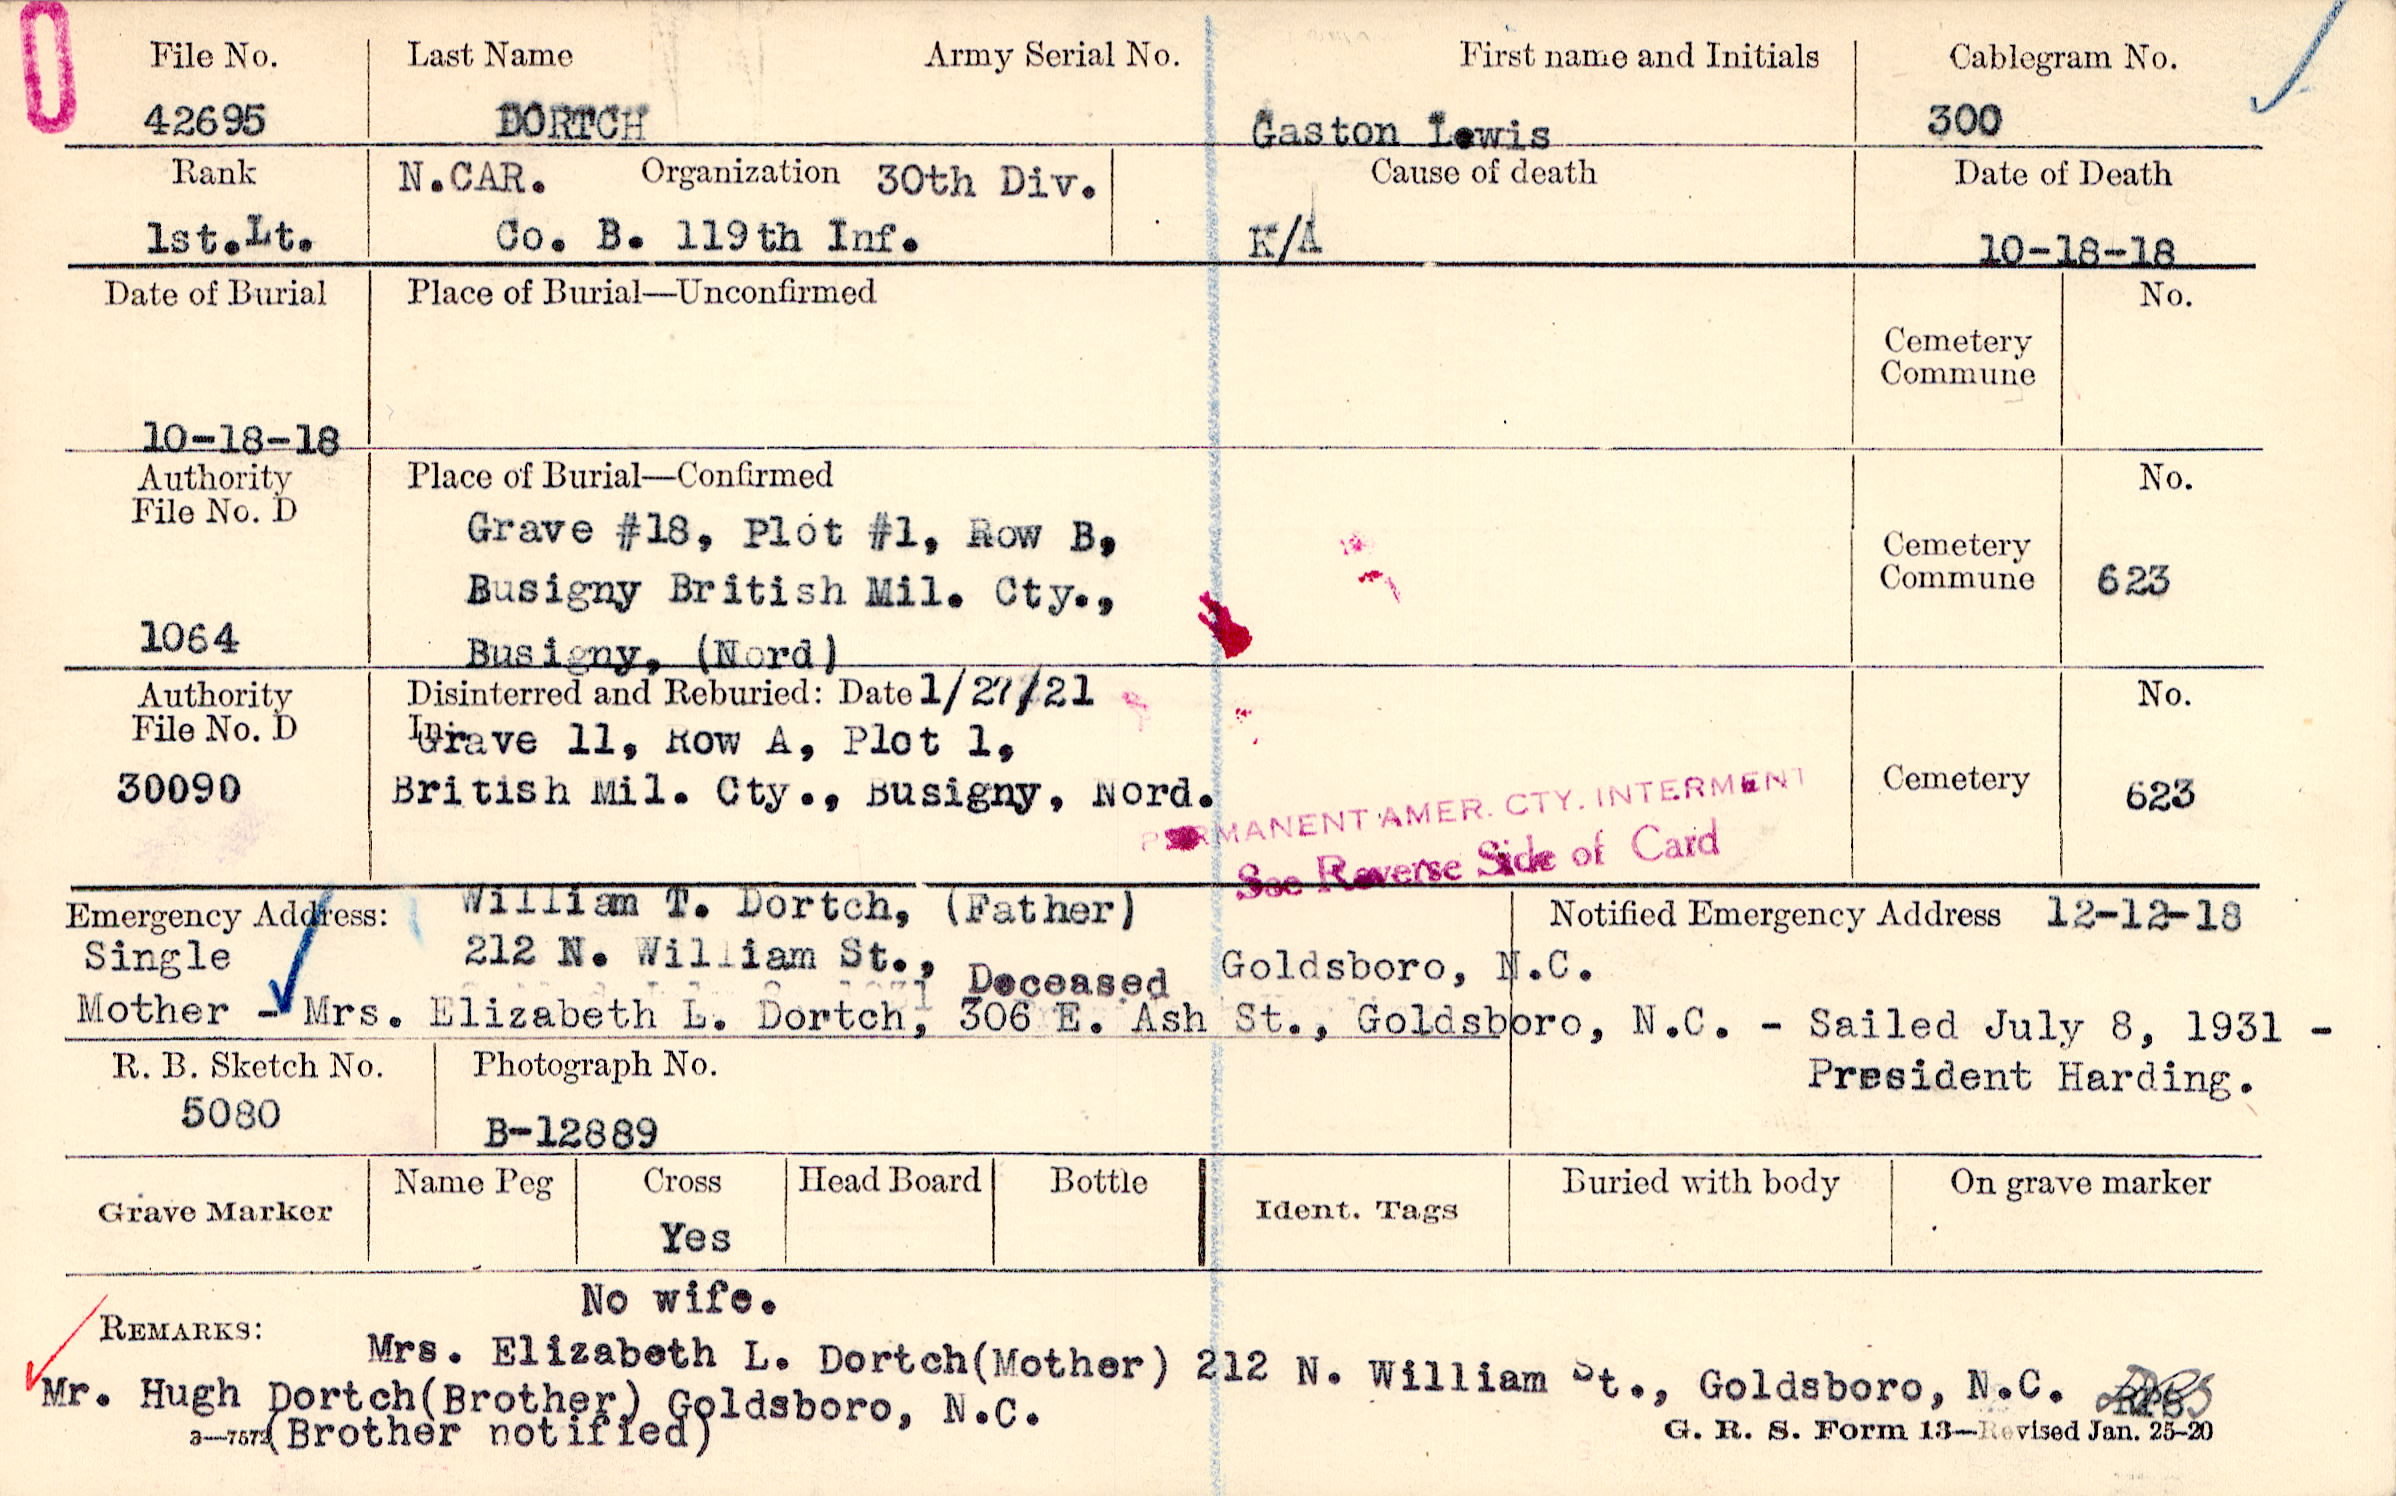 File No. Last Name Army Serial No. First name and Initials Cablegram No.
42695 DORTCH Gaston Lewis 300
Rank N.CAR. Organization 30th Div. Cause of death Date of Death
1st.Lt. Co. B. 119th Inf. K/A 10-18-18
Date of Burial Place of Burial—Unconfirmed No.
Cemetery
Commune
10-18-18
Authority Place of Burial—Confirmed No.
File No. D
Grave #18, Plot #1, Row B,
Cemetery
Busigny British Mil. Cty., Commune 623
1064 Busigny, (Nord)
Authority Disinterred and Reburied: Date 1/27/21 No.
File No. D In:
Grave 11, Row A, Plot 1,
30090 British Mil. Cty., Busigny, Nord. Cemetery 623
PERMANENT AMER. CTY. INTERMENT
See Reverse Side of Card
Emergency Address: William T. Dortch, (Father) Notified Emergency Address 12-12-18
Single 212 N. William St., Deceased Goldsboro, N.C.
Mother - Mrs. Elizabeth L. Dortch, 306 E. Ash St., Goldsboro, N.C. - Sailed July 8, 1931 -
President Harding.
R. B. Sketch No. Photograph No.
5080 B-12889
Grave Marker Name Peg Cross Head Board Bottle Ident. Tags Buried with body On grave marker
Yes
No wife.
REMARKS:
Mrs. Elizabeth L. Dortch(Mother) 212 N. William St., Goldsboro, N.C.
Mr. Hugh Dortch(Brother) Goldsboro, N.C.
(Brother notified)
3—7572 G. R. S. Form 13—Revised Jan. 25-20